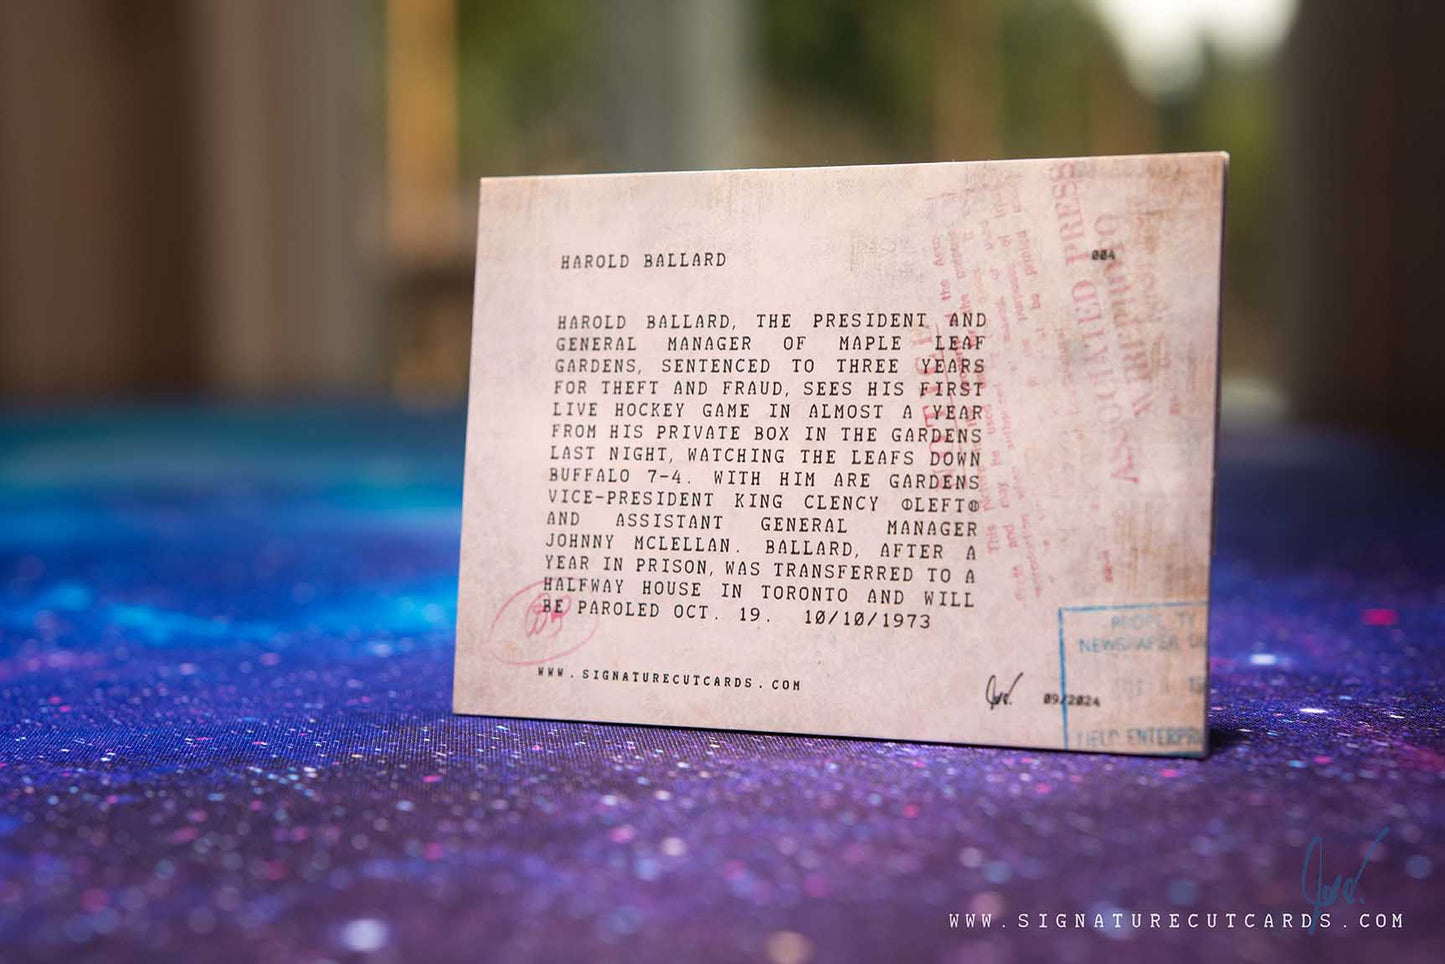 HAROLD BALLARD
004
HAROLD BALLARD, THE PRESIDENT AND
GENERAL MANAGER OF MAPLE LEAF
GARDENS, SENTENCED TO THREE YEARS
FOR THEFT AND FRAUD, SEES HIS FIRST
LIVE HOCKEY GAME IN ALMOST A YEAR
FROM HIS PRIVATE BOX IN THE GARDENS
LAST NIGHT, WATCHING THE LEAFS DOWN
BUFFALO 7-4. WITH HIM ARE GARDENS
VICE-PRESIDENT KING CLENCY ⦶LEFT⦶
AND ASSISTANT GENERAL MANAGER
JOHNNY MCLELLAN. BALLARD, AFTER A
YEAR IN PRISON, WAS TRANSFERRED TO A
HALFWAY HOUSE IN TORONTO AND WILL
BE PAROLED OCT. 19. 10/10/1973
WWW.SIGNATURECUTCARDS.COM
09/2024
ASSOCIATED PRESS
WIREPHOTO
NOTICE
NEWSPAPER
ENTERPRI
WWW.SIGNATURECUTCARDS.COM